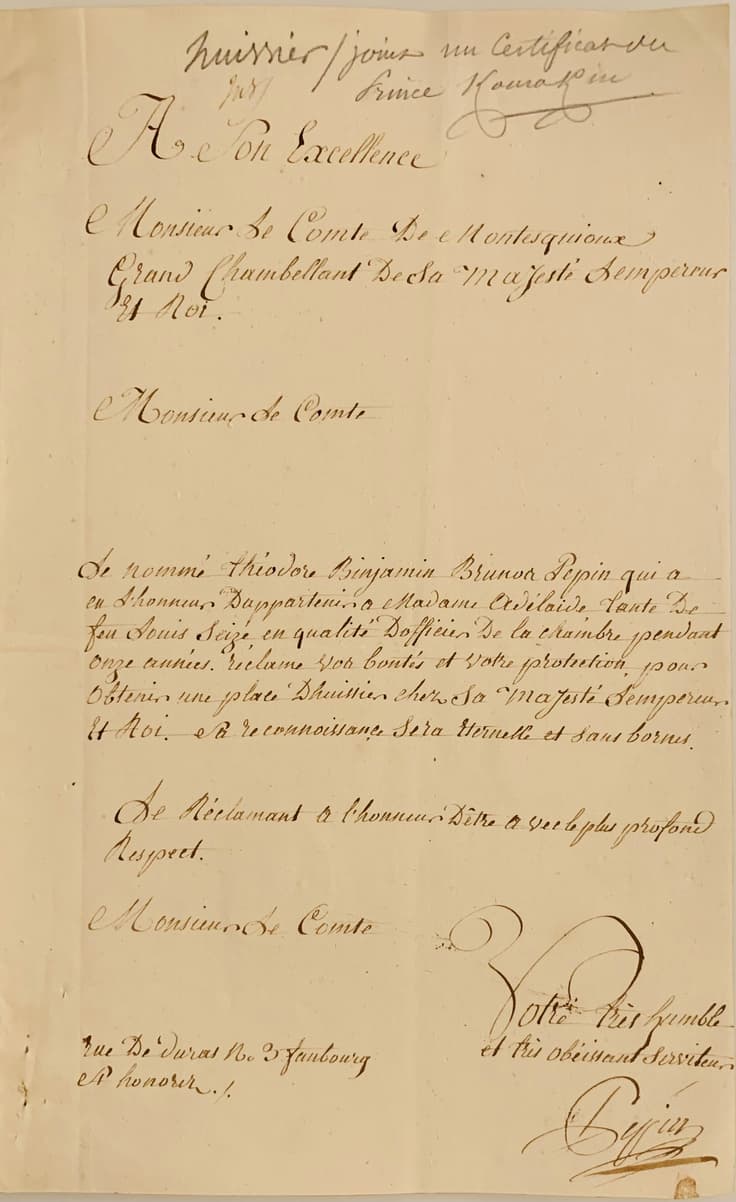 huissier / joint un Certificat du
Prince Kourakin
A Son Excellence
Monsieur Le Comte De Montesquioux
Grand Chambellant De Sa Majesté Lempereur
Et Roi.
Monsieur Le Comte
Le nommé théodore Binjamin Brunoa Pepin qui a
eu L'honneur Dappartenir a Madame Adélaide tante De
feu Louis Seize en qualité Dofficier De la chambre pendant
onze années. réclame vos bontés et votre protection pour
Obtenir une place Dhuissier chez Sa Majesté Lempereur
Et Roi. Sa reconnoissance Sera Eternelle et Sans bornes.
Le Réclamant a l'honneur D'être avec le plus profond
Respect.
Monsieur Le Comte
Votre très humble
et très obéissant Serviteur
rue De duras No 3 faubourg
St honorer ./.
Peppin